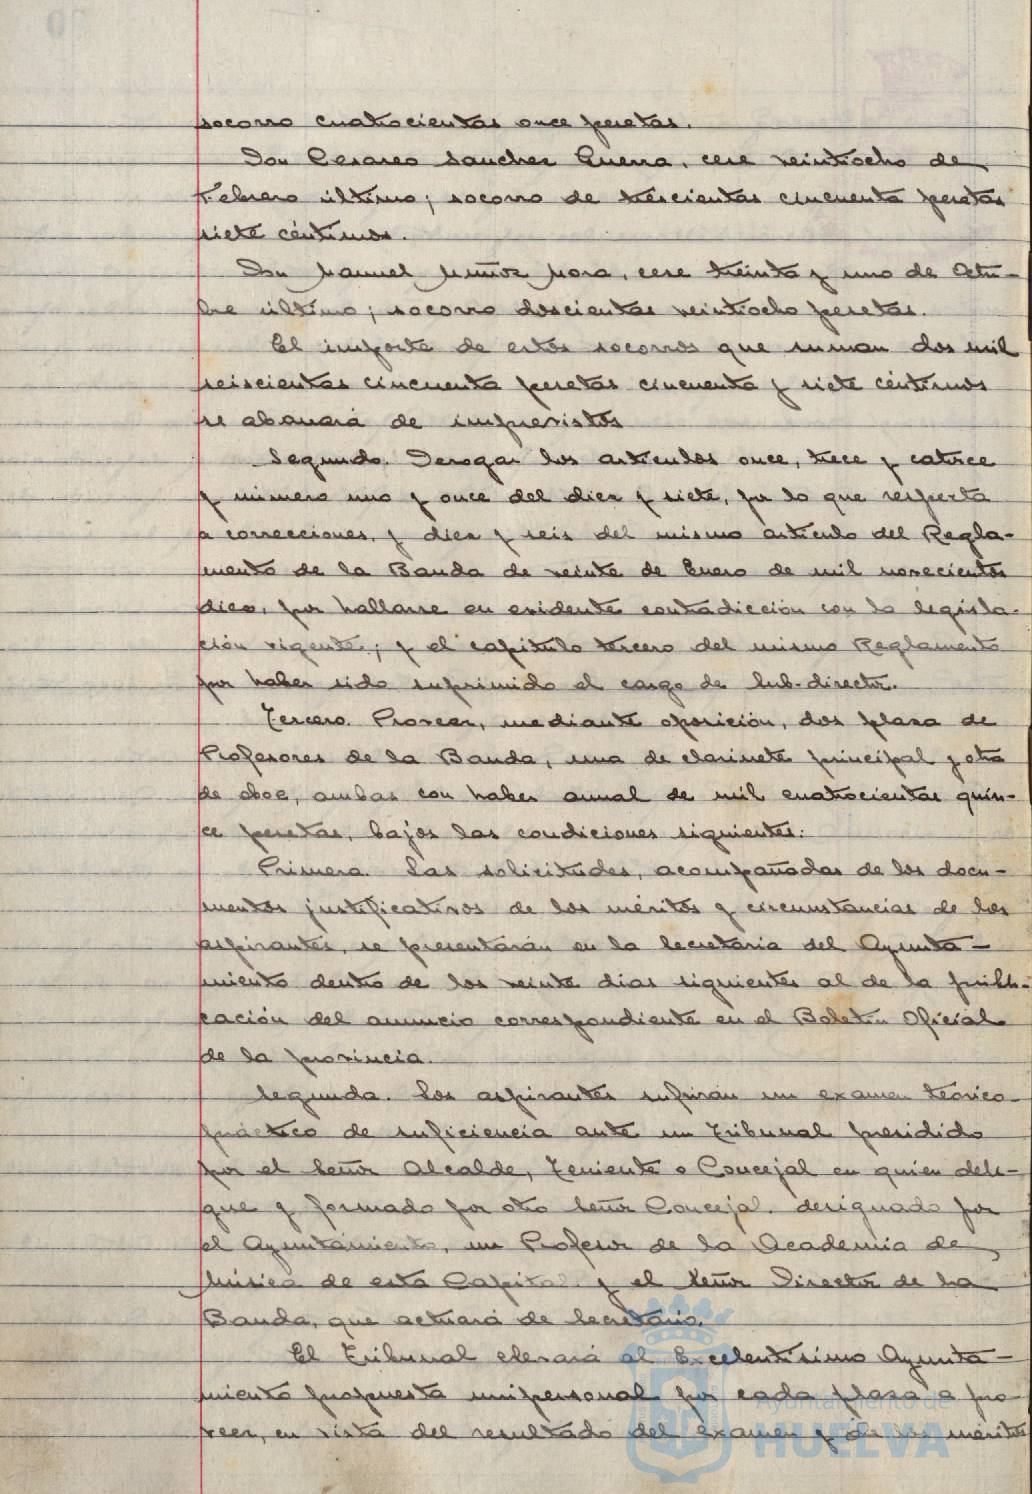 socorro cuatrocientas once pesetas.
Don Cesareo Sanchez Guerra, cese veintiocho de
Febrero último; socorro de trescientas cincuenta pesetas
siete céntimos.
Don Manuel Muñoz Mora, cese treinta y uno de Octu-
bre último; socorro doscientas veintiocho pesetas.
El importe de estos socorros que suman dos mil
seiscientas cincuenta pesetas cincuenta y siete céntimos
se abonará de imprevistos
Segundo. Derogar los artículos once, trece y catorce
y número uno y once del diez y siete, por lo que respecta
a correcciones, y diez y seis del mismo artículo del Regla-
mento de la Banda de veinte de Enero de mil novecientos
diez, por hallarse en evidente contradicción con la legisla-
ción vigente; y el capítulo tercero del mismo Reglamento
por haber sido suprimido el cargo de Sub-director.
Tercero. Proveer, mediante oposición, dos plaza de
Profesores de la Banda, una de clarinete principal y otra
de oboe, ambas con haber anual de mil cuatrocientas quin-
ce pesetas, bajos las condiciones siguientes:
Primera. Las solicitudes, acompañadas de los docu-
mentos justificativos de los méritos y circunstancias de los
aspirantes, se presentarán en la Secretaria del Ayunta-
miento dentro de los veinte dias siguientes al de la publi-
cación del anuncio correspondiente en el Boletín Oficial
de la provincia.
Segunda. Los aspirantes sufrirán un examen teórico-
práctico de suficiencia ante un Tribunal presidido
por el Señor Alcalde, Teniente o Concejal en quien dele-
gue y formado por otro Señor Concejal, designado por
el Ayuntamiento, un Profesor de la Academia de
Música de esta Capital y el Señor Director de la
Banda, que actuará de Secretario.
El Tribunal elevará al Excelentísimo Ayunta-
miento propuesta unipersonal por cada plaza a pro-
veer, en vista del resultado del examen y de los méritos
Ayuntamiento de
HUELVA